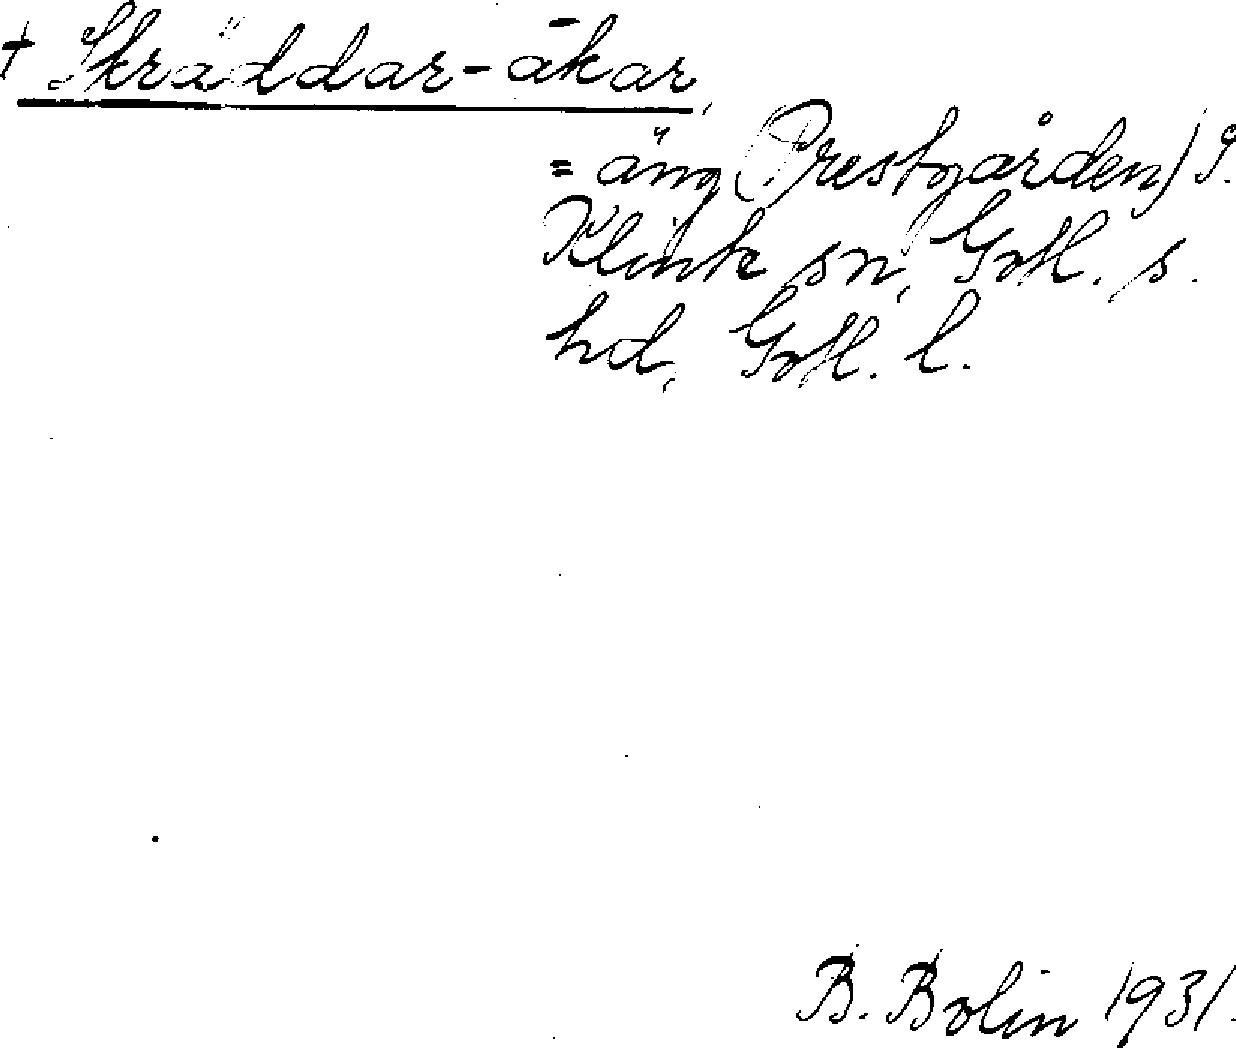 † Skräddar-åkar,
= äng (Prestgården) i
Klinte sn, Gotl. s.
hd, Gotl. l.
B. Bolin 1931.